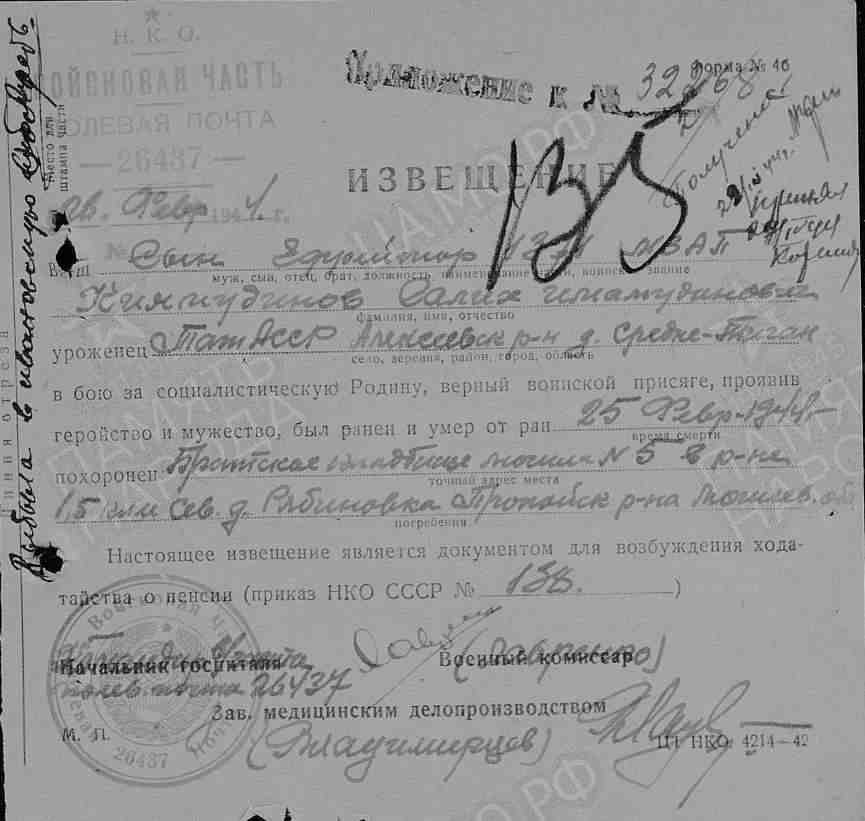 Н. К. О.
ВОЙСКОВАЯ ЧАСТЬ
ПОЛЕВАЯ ПОЧТА
— 26437 —
Место для
штампа части
Приложение к №
Форма № 46
Получена
ИЗВЕЩЕНИЕ
135
26. Февр. 1944 г.
№
Ваш Сын Ефрейтор
муж, сын, отец, брат, должность, наименование части, воинское звание
Салих
фамилия, имя, отчество
уроженец ТатАССР Алексеевск р-н д. Средне-Тиган
село, деревня, район, город, область
в бою за социалистическую Родину, верный воинской присяге, проявив
геройство и мужество, был ранен и умер от ран 25 Февр. 1944 г.
время смерти
похоронен Братское кладбище могила N 5 в р-не
точный адрес места
1,5 клм Сев. д. Рябиновка Пропойск р-на Могилев. обл
погребения
Настоящее извещение является документом для возбуждения хода-
тайства о пенсии (приказ НКО СССР № 138.)
Начальник госпиталя
Военный комиссар
(Лавренко)
полев. почта 26437
Зав. медицинским делопроизводством
М. П.
(Владимирцев)
ЦТ НКО 4214—42
Войсковая часть
полевая почта
26437
Линия отреза
Выбыла в Ивановскую
ПАМЯТЬ НАРОДА
ЦАМО РФ